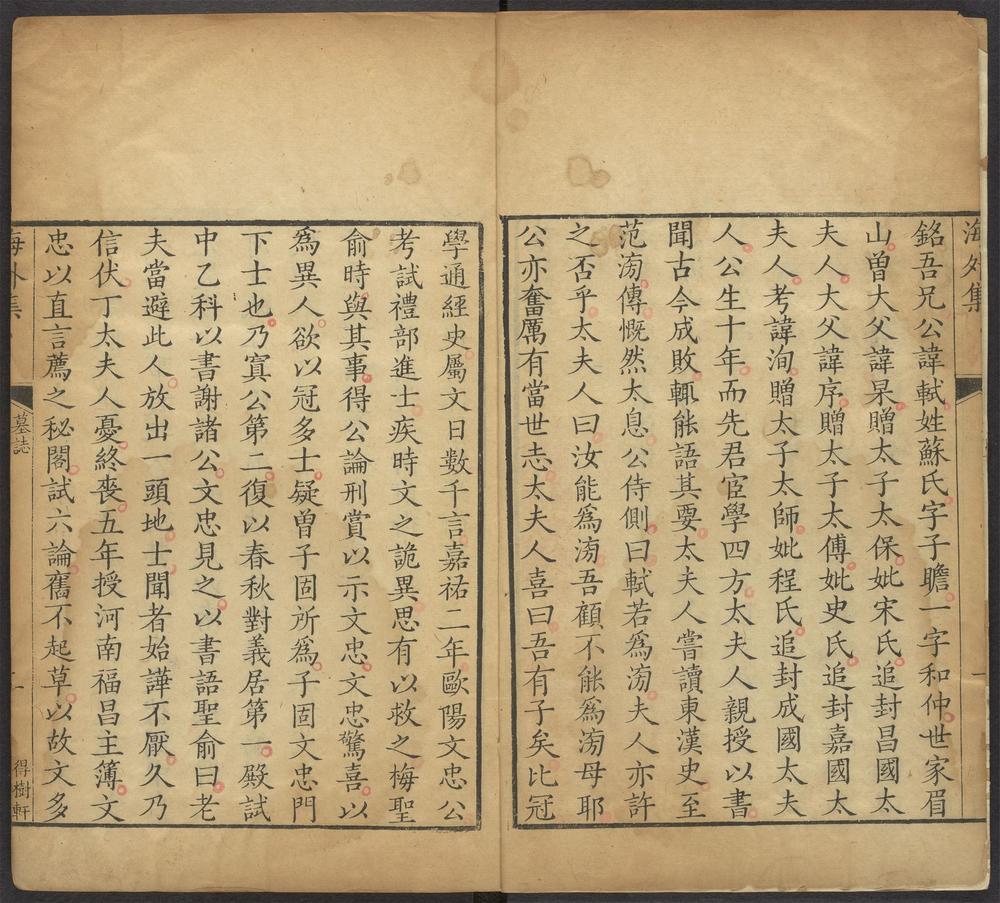 海外集
一
銘吾兄公諱軾姓蘇氏字子瞻一字和仲世家眉
山曾大父諱杲贈太子太保妣宋氏追封昌國太
夫人大父諱序贈太子太傅妣史氏追封嘉國太
夫人考諱洵贈太子太師妣程氏追封成國太夫
人公生十年而先君宦學四方太夫人親授以書
聞古今成敗輒能語其要太夫人嘗讀東漢史至
范滂傳慨然太息公侍側曰軾若為滂夫人亦許
之否乎太夫人曰汝能為滂吾顧不能為滂母耶
公亦奮厲有當世志太夫人喜曰吾有子矣比冠
學通經史屬文日數千言嘉祐二年歐陽文忠公
考試禮部進士疾時文之詭異思有以救之梅聖
俞時與其事得公論刑賞以示文忠文忠驚喜以
為異人欲以冠多士疑曾子固所為子固文忠門
下士也乃寘公第二復以春秋對義居第一殿試
中乙科以書謝諸公文忠見之以書語聖俞曰老
夫當避此人放出一頭地士聞者始譁不厭久乃
信伏丁太夫人憂終喪五年授河南福昌主簿文
忠以直言薦之秘閣試六論舊不起草以故文多
海外集
墓誌
一
得樹軒